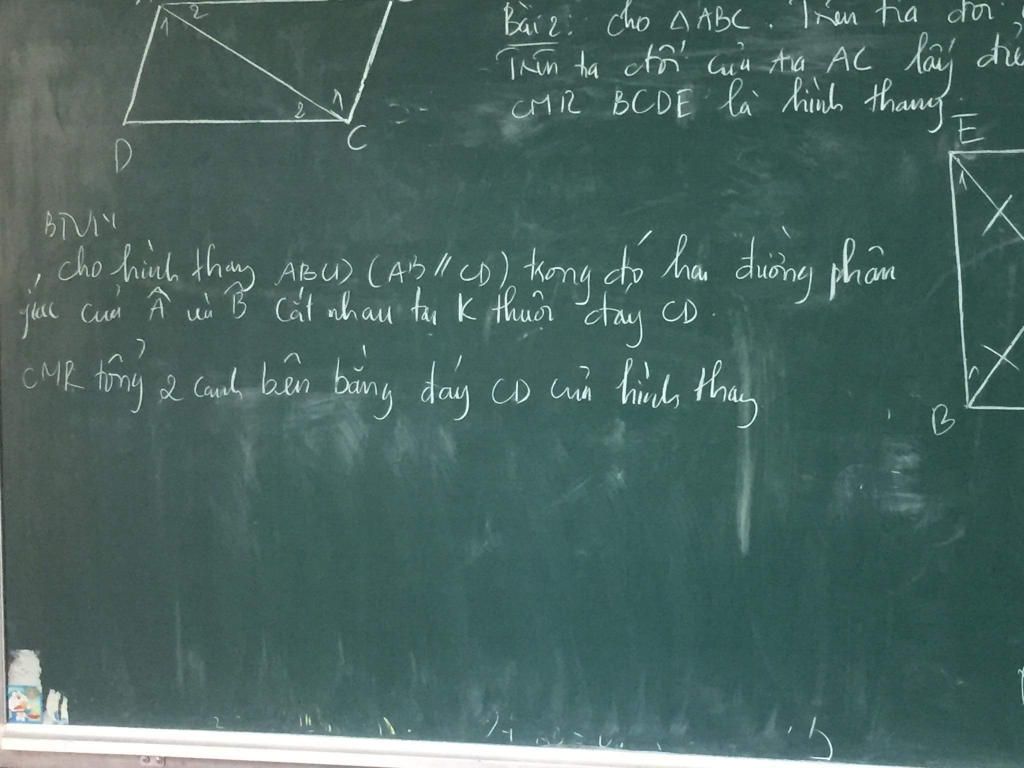 Bài 2: Cho △ABC. Trên tia đối
Trên tia đối của tia AC lấy
CMR BCDE là hình thang.
1 2
2 1
D
C
E
1
B
BTVN
Cho hình thang ABCD (AB // CD) trong đó hai đường phân
giác của Â và B̂ cắt nhau tại K thuộc đáy CD.
CMR tổng 2 cạnh bên bằng đáy CD của hình thang